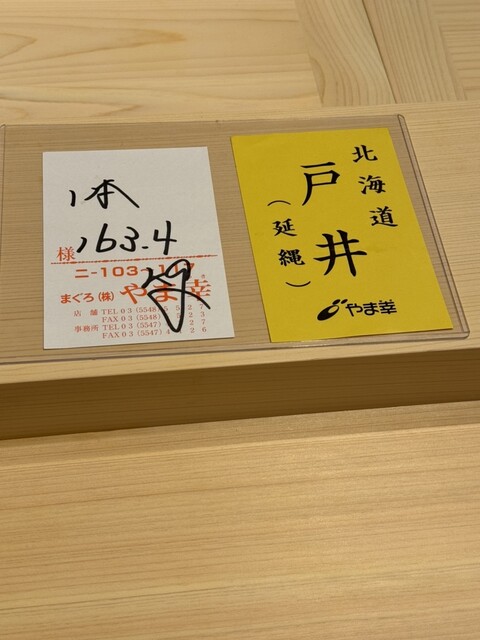 1本
163.4
様
ニ-103
まぐろ(株)やま幸
店 舗 TEL 03 (5548)
FAX 03 (5548)
事務所 TEL 03 (5547)
FAX 03 (5547)
北海道
戸井
(延縄)
やま幸